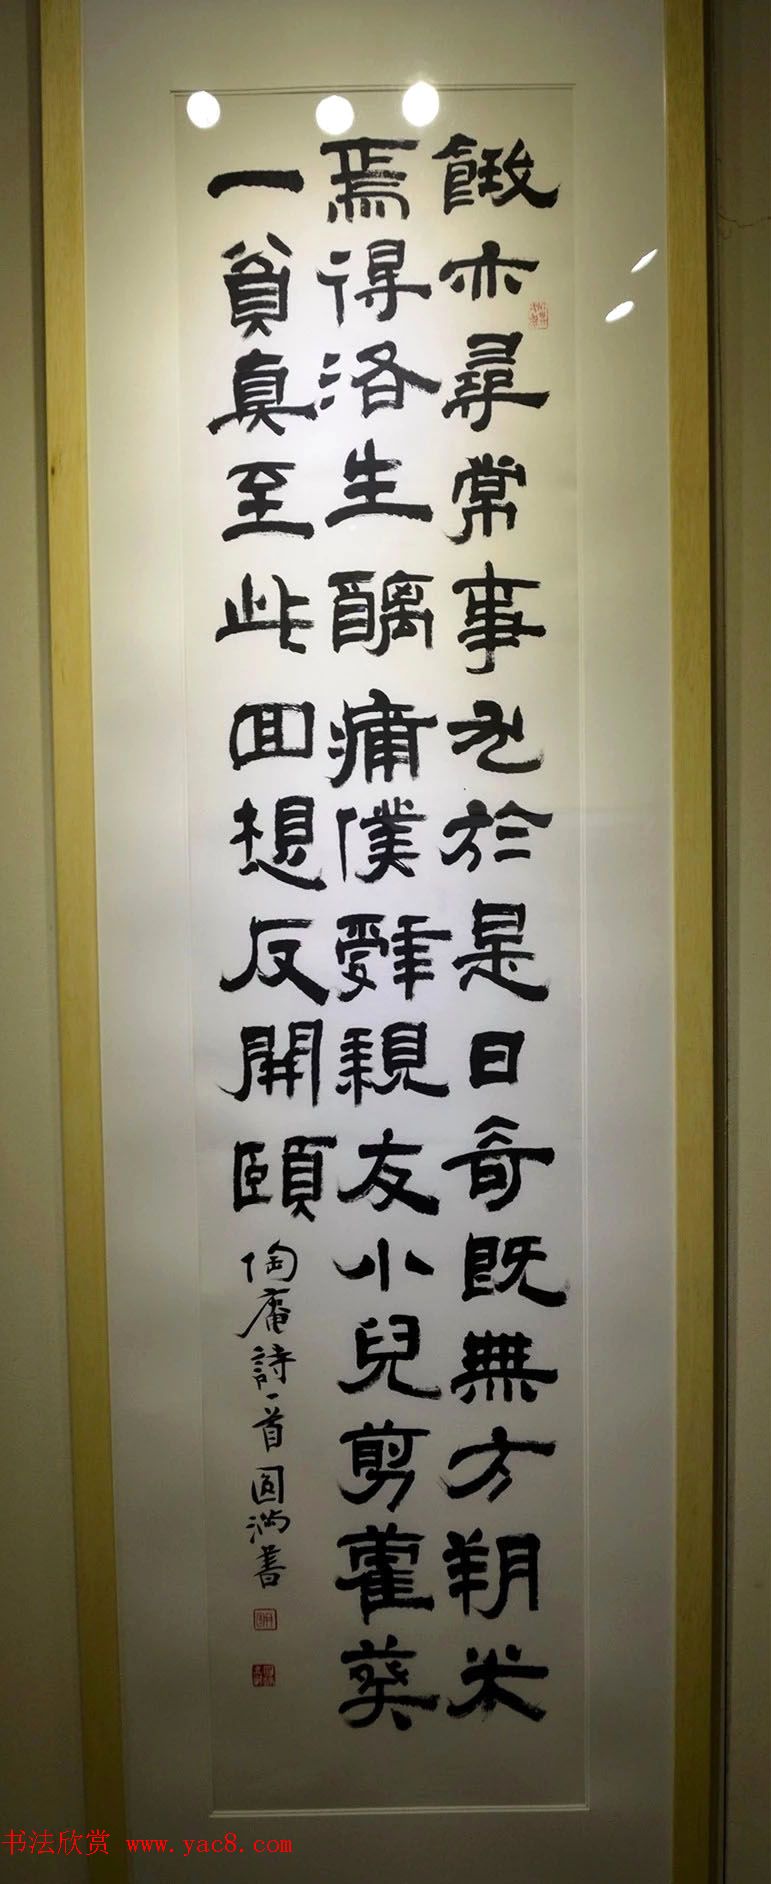 餓亦尋常事尤於是日奇既無方朔米
焉得洛生醨痡僕辤親友小兒剪藿葵
一貧真至此回想反開頤
陶庵詩一首圓滿書
书法欣赏 www.yac8.com